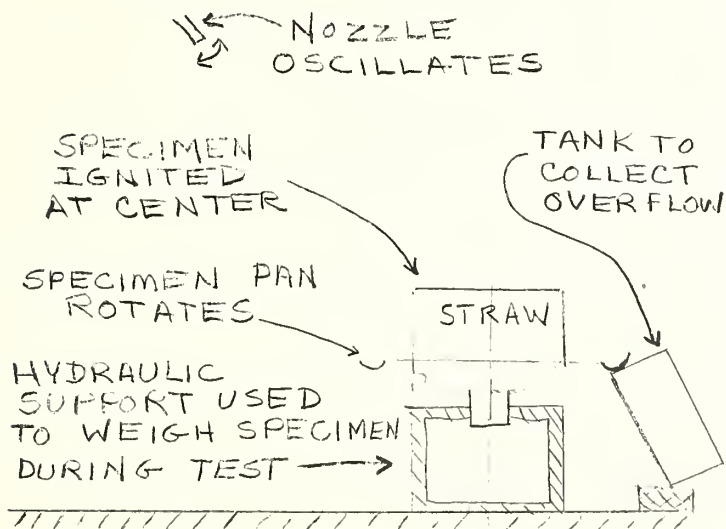 NOZZLE
OSCILLATES
SPECIMEN
IGNITED
AT CENTER
TANK TO
COLLECT
OVERFLOW
SPECIMEN PAN
ROTATES
STRAW
HYDRAULIC
SUPPORT USED
TO WEIGH SPECIMEN
DURING TEST